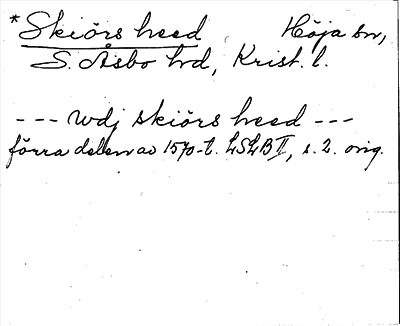 *Skiörs heed Höja sn,
S. Åsbo hd, Krist. l.
--- wdj skiörs heed ---
förra delen av 1570-t. LSLB II, s. 2. orig.